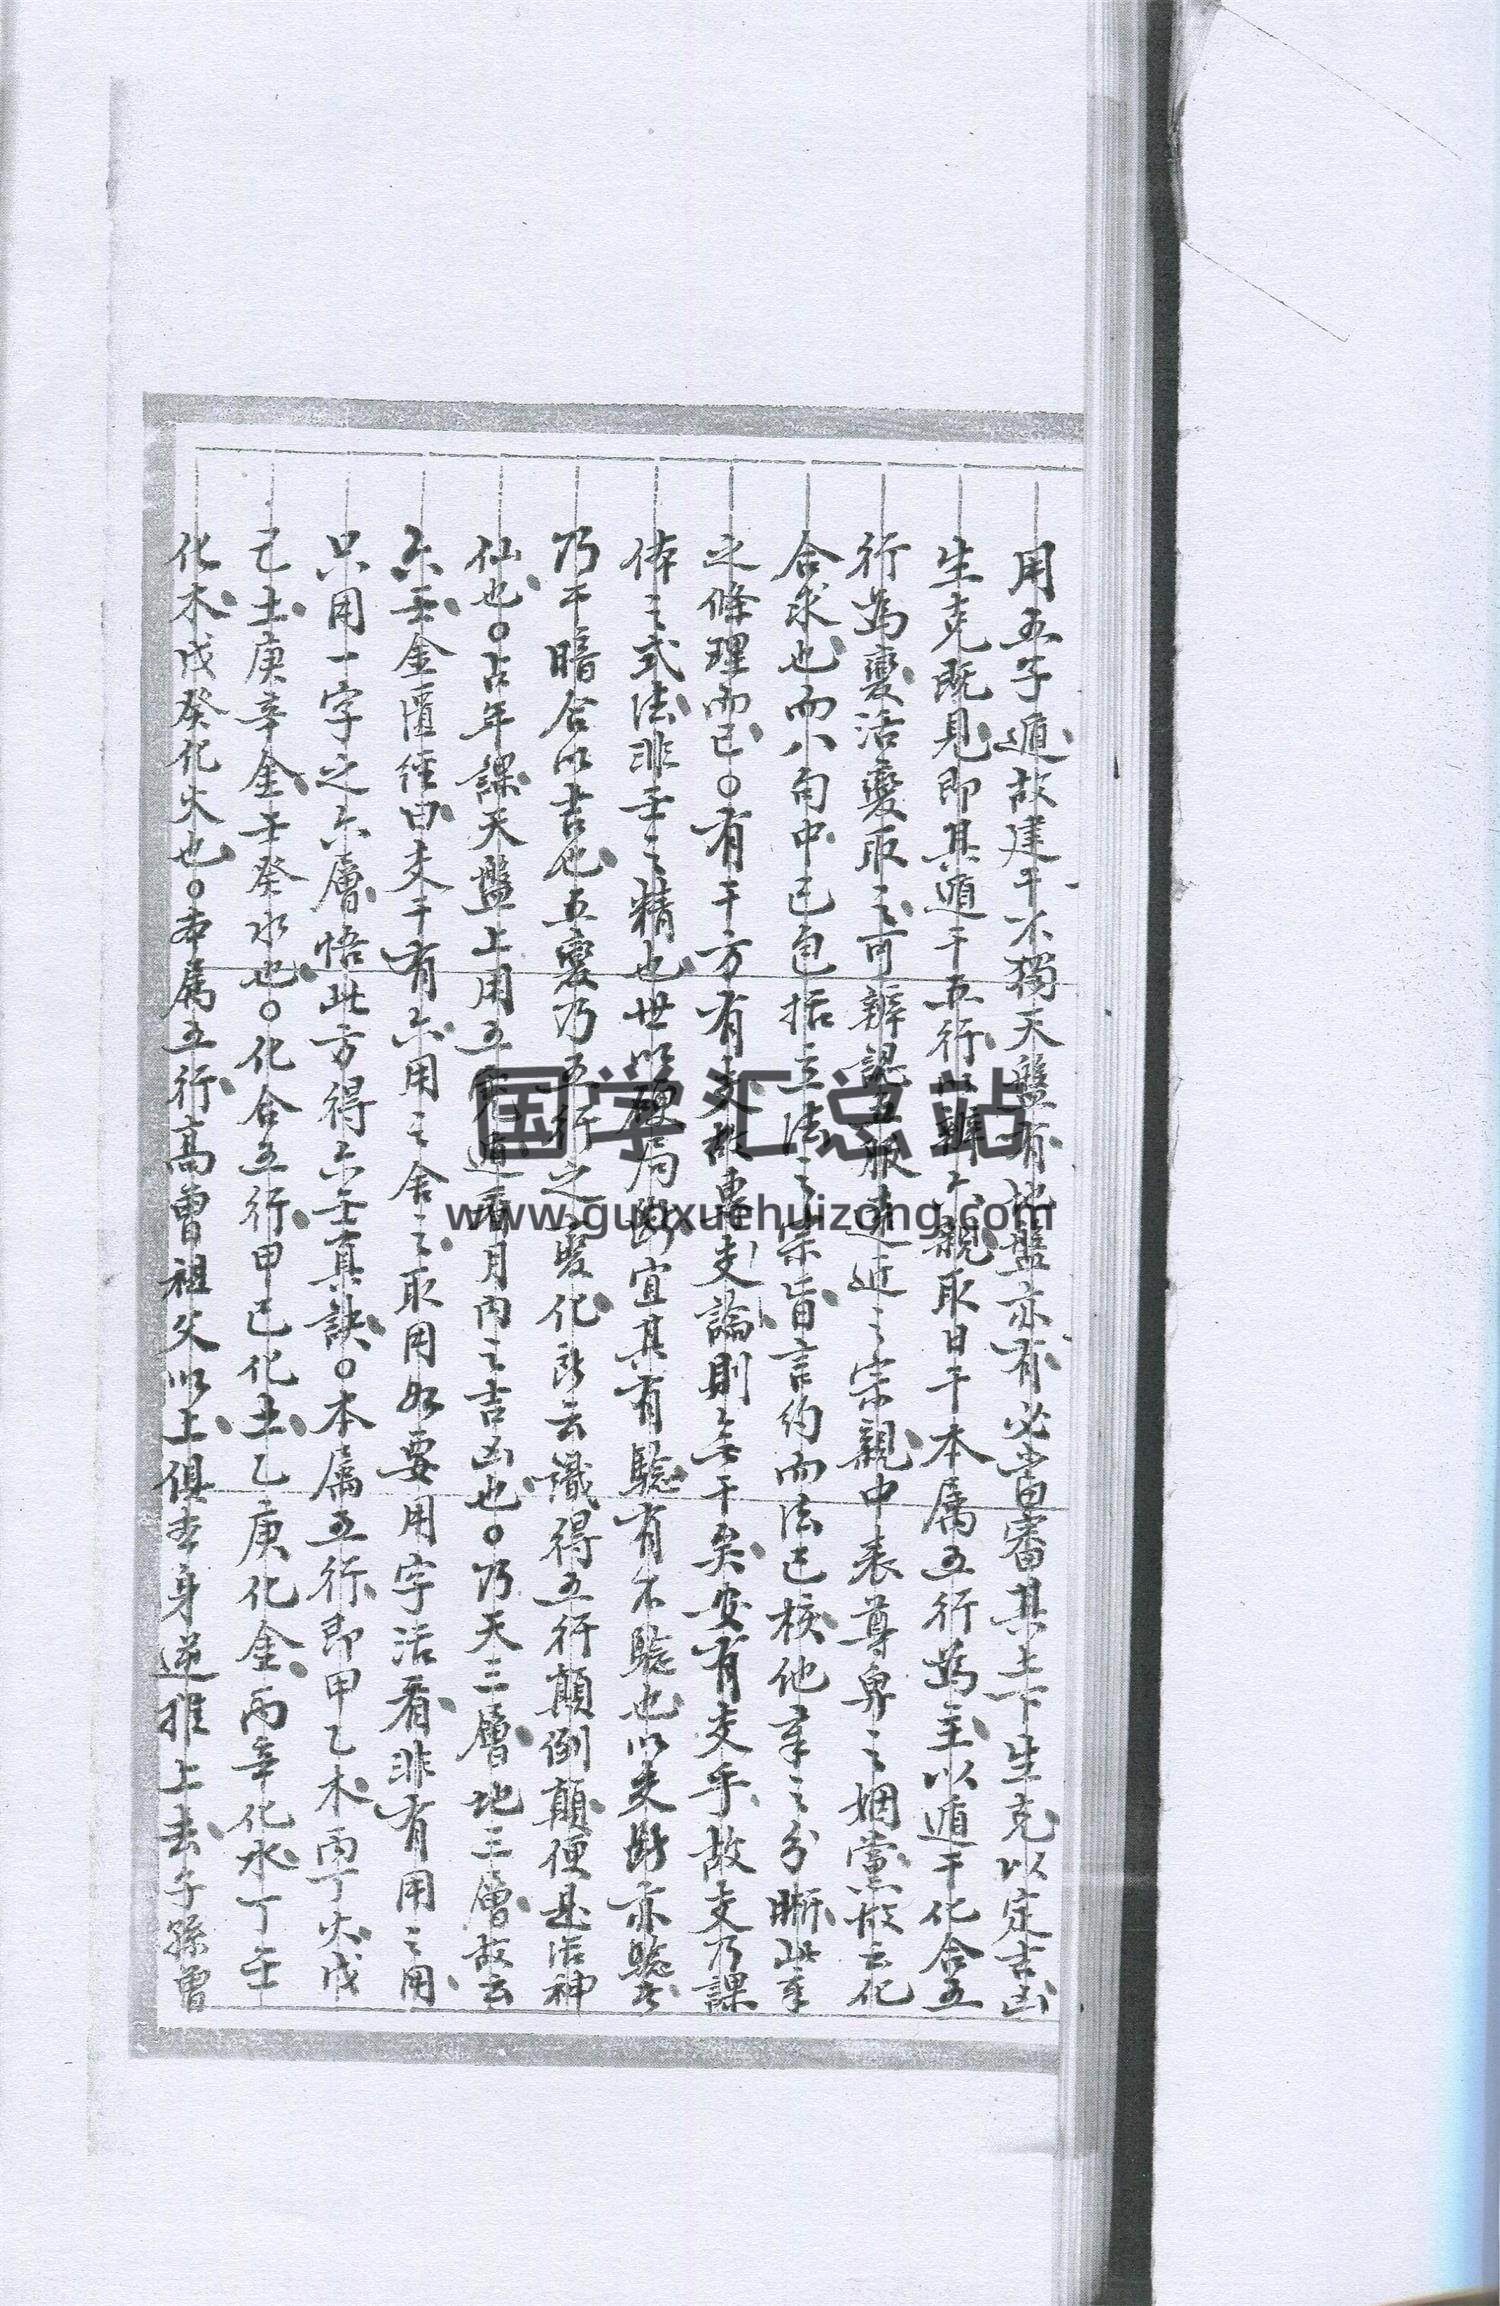 用五子遁故建干不獨天盤有地盤亦有必當審其上下生克以定吉凶
生克既見即其遁干五行以辨六親取日干本属五行為主以遁干化合五
行為变活变取之可辨認五服遠近之宗親中表尊卑之姻党故云化
合求也而八句中已包括立法之宗旨言約而法已核他章之分晰此章
之條理而已○有干方有支故專支論則無干矣安有支乎故支乃課
体之式法非壬之精也世以硬局断宜其有騐有不騐也以支断亦騐者
乃干暗合以吉也五变乃五行之变化所云識得五行顛倒顛便是活神
仙也○占年課天盤上用五虎遁看月内之吉凶也○乃天三層地三層故云
六壬金匱經曰支干有六用之舍之取用如要用字活看非有用之用
只用一字之六層悟此方得六壬真訣○本属五行即甲乙木丙丁火戊
己土庚辛金壬癸水也○化合五行甲己化土乙庚化金丙辛化水丁壬
化木戊癸化火也○本属五行高曾祖父以上俱本身逆推上去子孫曾
国学汇总站
www.guoxuehuizong.com